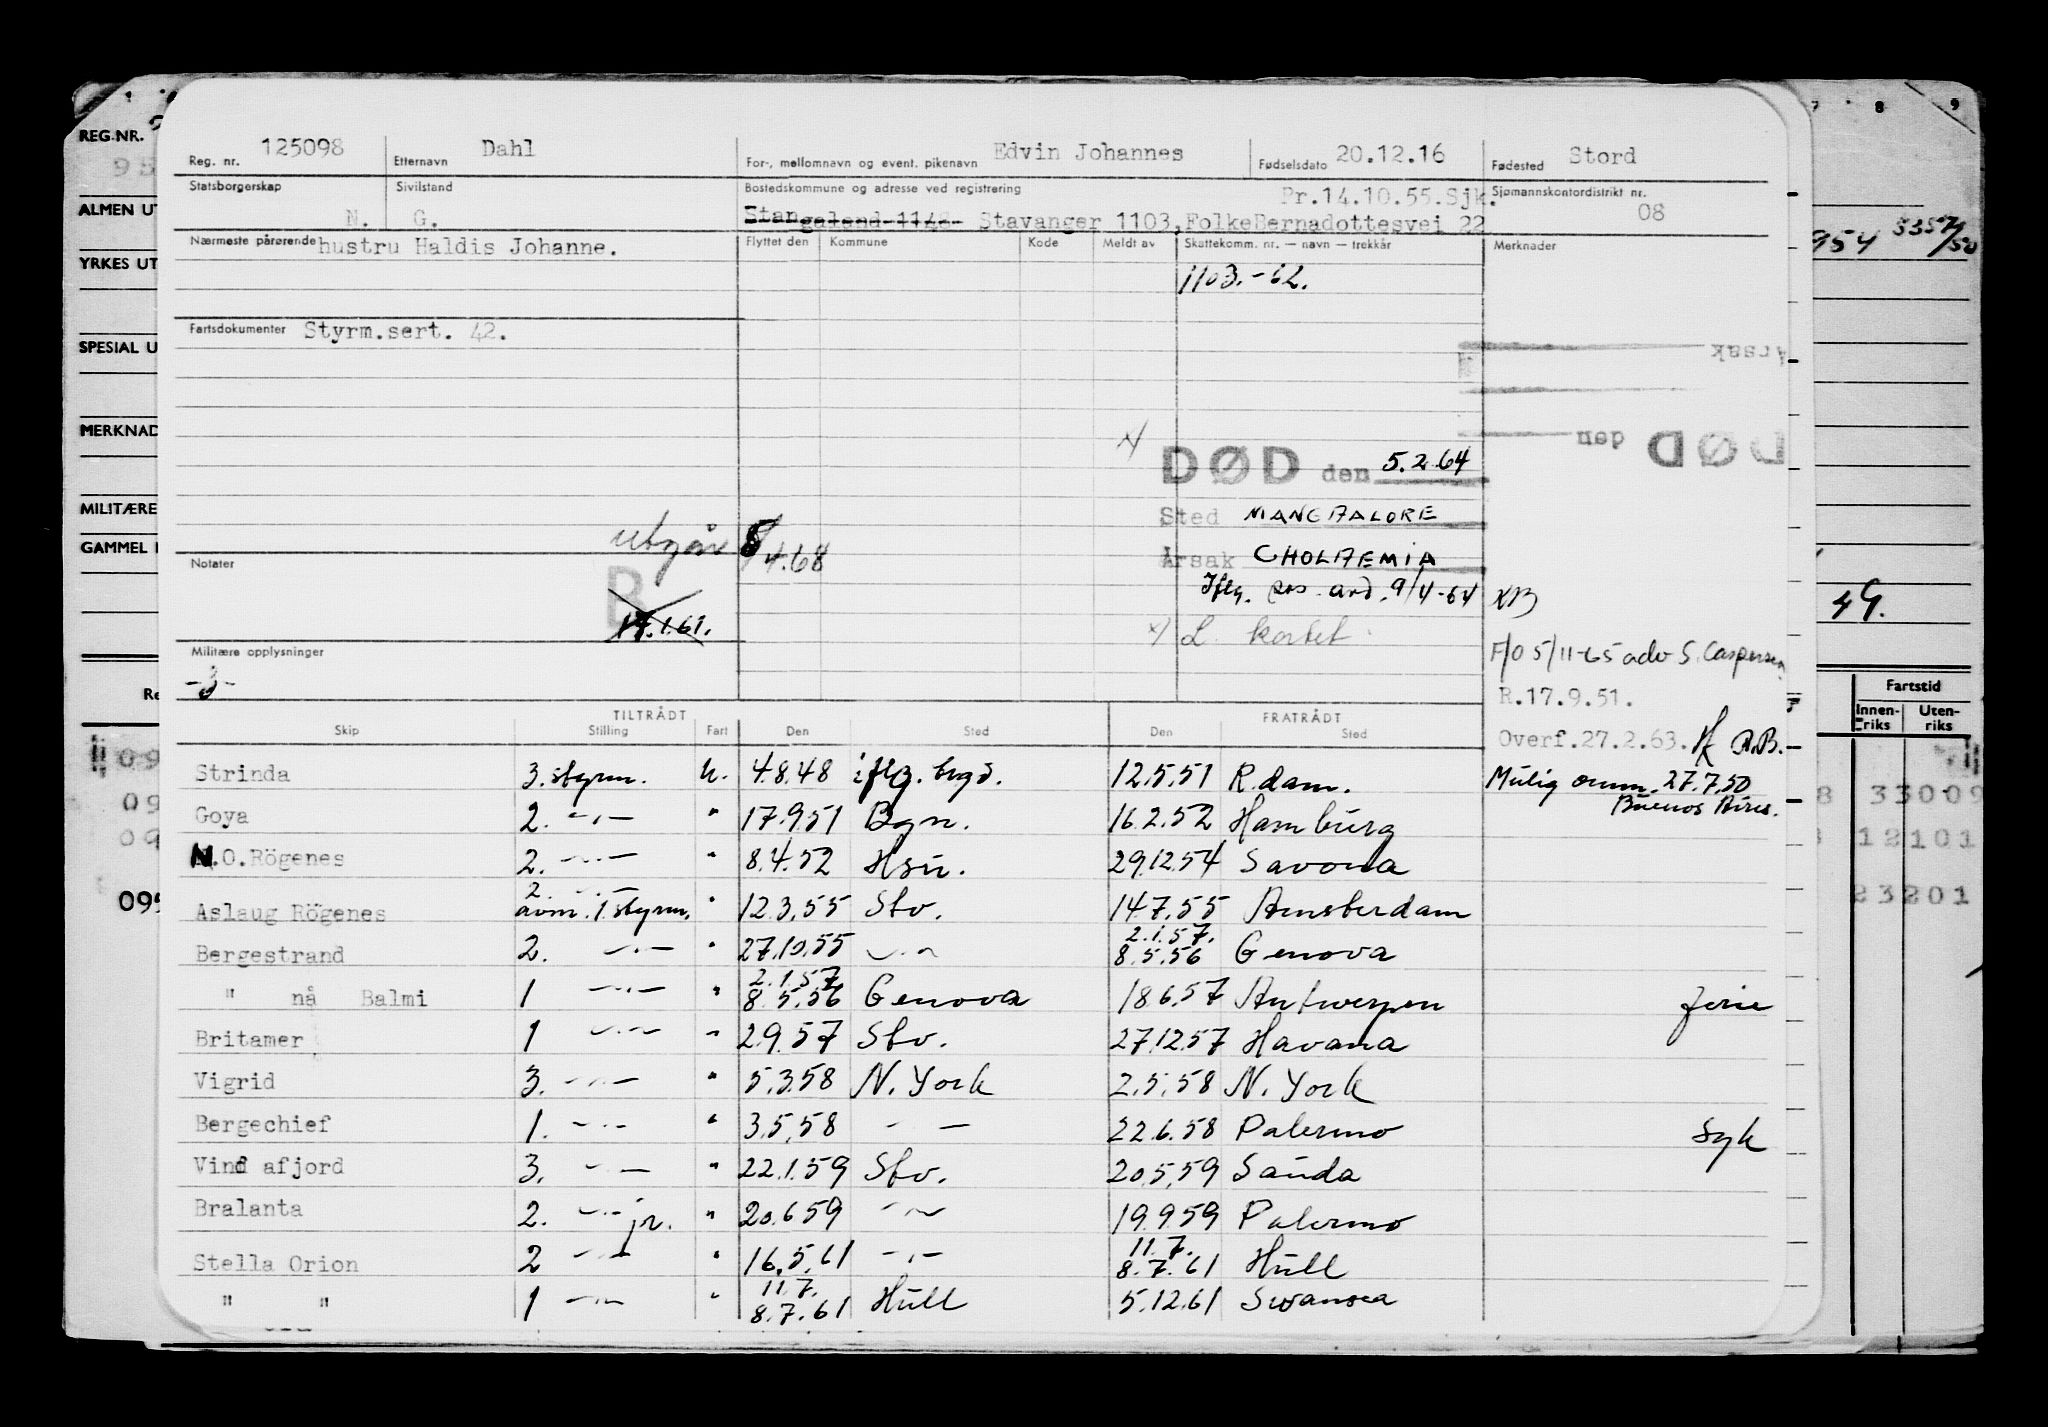 REG.NR.
ALMEN UT
YRKES UT
SPESIAL U
MERKNAD
MILITÆRE
GAMMEL
Reg. nr. 125098 Etternavn Dahl For-, mellomnavn og event. pikenavn Edvin Johannes Fødselsdato 20.12.16 Fødested Stord
Statsborgerskap N. Sivilstand G. Bostedskommune og adresse ved registrering Pr.14.10.55.Sjk. Sjømannskontordistrikt nr. 08
Stangaland 1148 Stavanger 1103,FolkeBernadottesvei 22
Nærmeste pårørende hustru Haldis Johanne. Flyttet den Kommune Kode Meldt av Skattekomm. nr. — navn — trekkår Merknader
1103.-62.
Fartsdokumenter Styrm.sert. 42.
Årsak
DØD den
x/ DØD den 5.2.64
Sted MANGALORE
Årsak CHOLAEMIA
utgår 8/4.68
Iflg. pos. ard. 9/4-64 XB
Notater
B
17.1.61.
x/ L. kortet
Militære opplysninger
-3-
F/O 5/11-65 adv S. Caspersen
R.17.9.51.
Overf.27.2.63. A.B.
TILTRÅDT FRATRÅDT
Skip Stilling Fart Den Sted Den Sted
Strinda 3. styrm. u. 4.8.48 iflg. brgd. 12.5.51 R.dam. Mulig omm. 27.7.50
Buenos Aires.
Goya 2. -"- " 17.9.51 Bgn. 16.2.52 Hamburg
N.O.Rögenes 2. -"- " 8.4.52 Hsu. 29.12.54 Savona
2. -"-
Aslaug Rögenes avm. 1. styrm. " 12.3.55 Stv. 14.7.55 Amsterdam
2.1.57.
Bergestrand 2. -"- " 27.10.55 -"- 8.5.56 Genova
2.1.57
" nå Balmi 1 -"- " 8.5.56 Genova 18.6.57 Antwerpen ferie
Britamer 1 -"- " 2.9.57 Stv. 27.12.57 Havana
Vigrid 3. -"- " 5.3.58 N. York 2.5.58 N. York
Bergechief 1. -"- " 3.5.58 - — 22.6.58 Palermo Syk
Vindafjord 3. -"- " 22.1.59 Stv. 20.5.59 Sauda
Bralanta 2. -"- jr. " 20.6.59 -"- 19.9.59 Palermo
11.7.
Stella Orion 2 -"- " 16.5.61 -"- 8.7.61 Hull
11.7.
" " 1 -"- " 8.7.61 Hull 5.12.61 Swansea
7 8 9
954 3357/50
49.
Fartstid
Innenriks Utenriks
33009
12101
23201